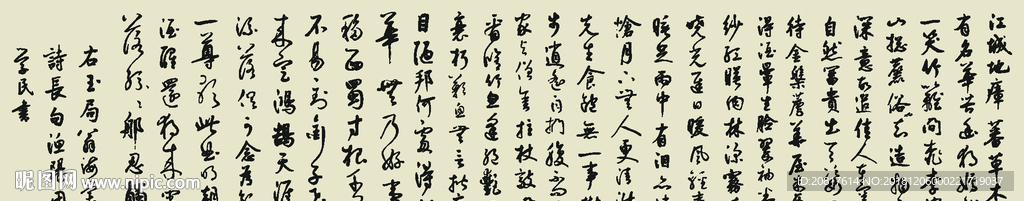 江城地瘴蕃草木
有名華苦幽獨嫣
一笑竹籬間桃李
山總麄俗也知造物
深意故遣佳人在
自然富貴出天姿
待金盤薦華屋
得酒暈生臉翠袖
紗紅映肉林深霧
曉光遲日暖風輕
睡足雨中有淚亦
愴月下無人更清淑
先生食飽無一事散
步逍遙自捫腹不問
家與僧舍拄杖敲
看脩竹忽逢絕艷
衰朽歎息無言揩
目陋邦何處得
華無乃好事
移西蜀寸根千
不易到銜子飛
來定鴻鵠天涯
流落俱可念為飲
一尊歌此曲明朝
酒醒還獨來雪
落紛紛那忍觸
右玉局翁海棠
詩長句漁陽
學民書
昵图网 www.nipic.com